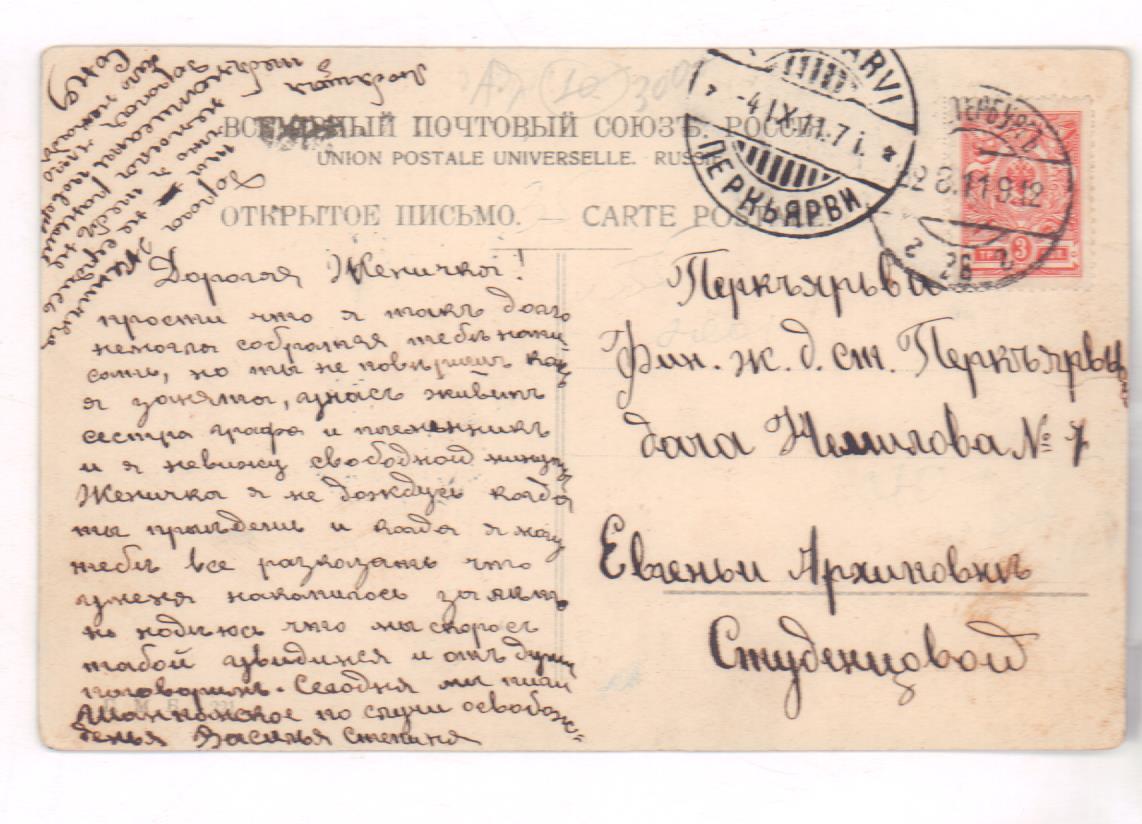 ВСЕМІРНЫЙ ПОЧТОВЫЙ СОЮЗЪ. РОССІЯ
UNION POSTALE UNIVERSELLE. RUSSIE
ОТКРЫТОЕ ПИСЬМО. — CARTE POSTALE.
ARVI
-4 IX.11. 7 i.
ПЕРКЬЯРВИ
22 8.11 9.12
2 26 2
ТРИ 3 КОП.
Дорогая Женичка!
прости что я такъ долго
немогла собратся тебѣ напи-
сать, но ты не повѣришь какъ
я занята, унасъ живетъ
сестра графа и племенникъ
и я невижу свободной минуты
Женичка я не дождусь когда
ты приѣдешь и когда я могу
тебѣ все разказать что
уменя накопилось
но надѣюсь что мы скоро съ
тобой увидимся и отъ души
поговоримъ. Сегодня мы пили
Шампанское по случ освобож-
денья Василья Степина
Перкъярьви
Фин. ж. д. ст. Перкъярви
дача Немилова № 7
Евгеньи Архиповнѣ
Студенцовой